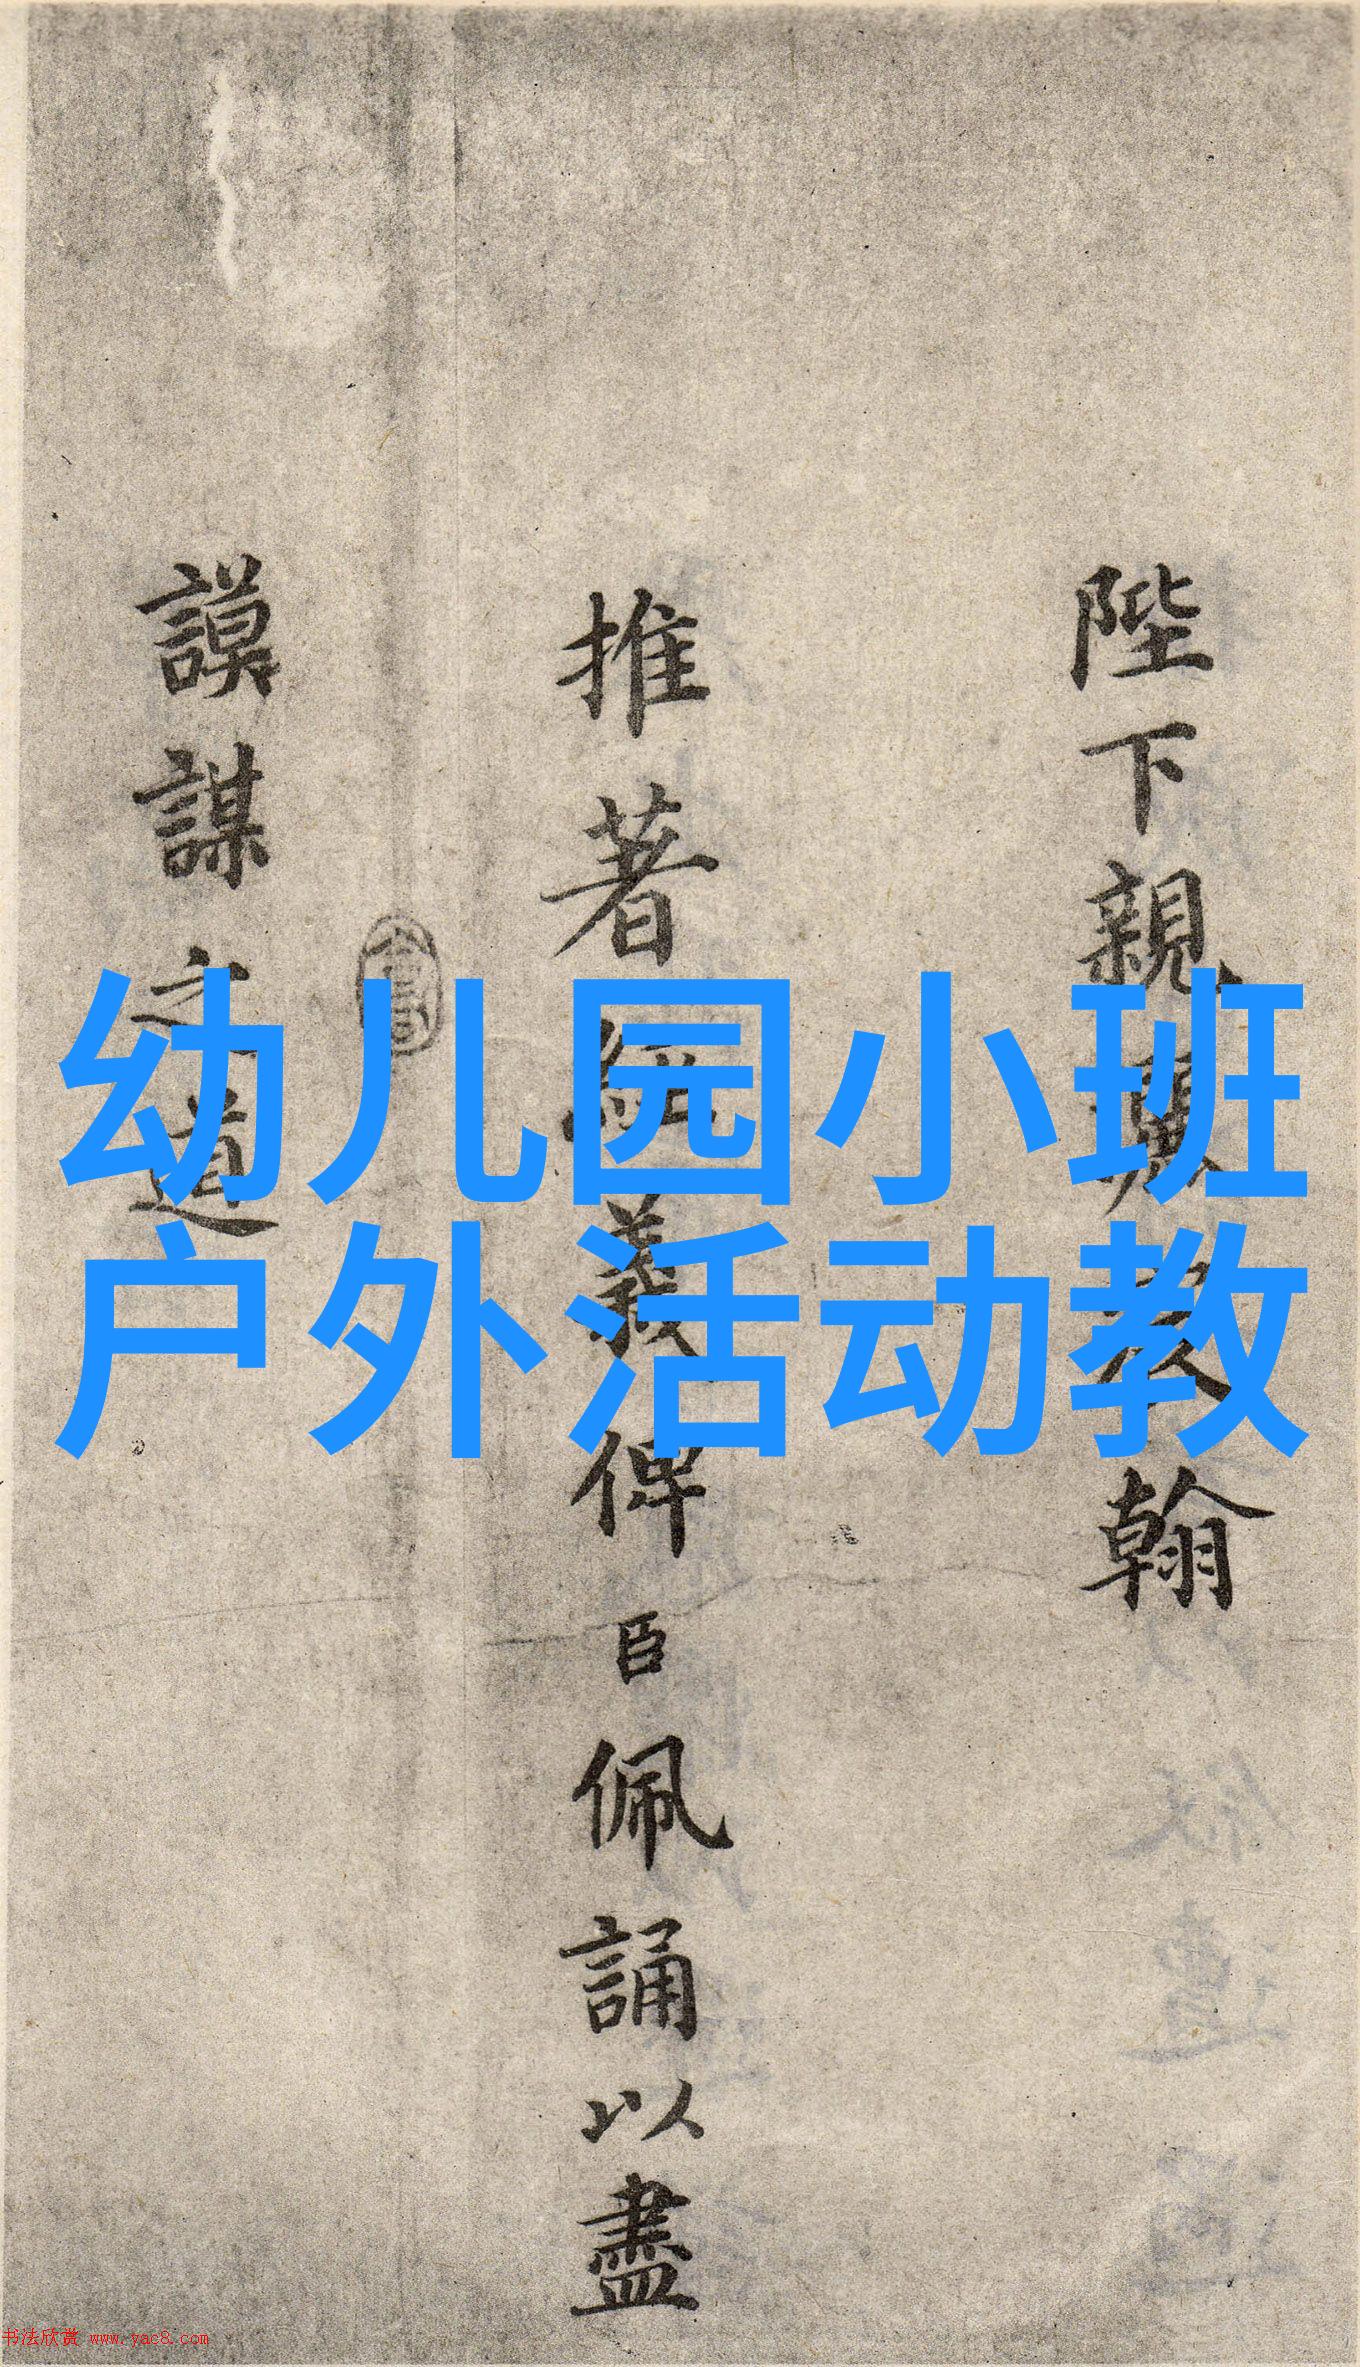 陛下親翰
推著經義俾臣佩誦以盡
謨謀之道
幼儿园小班
户外活动教
书法欣赏 www.yac8.com